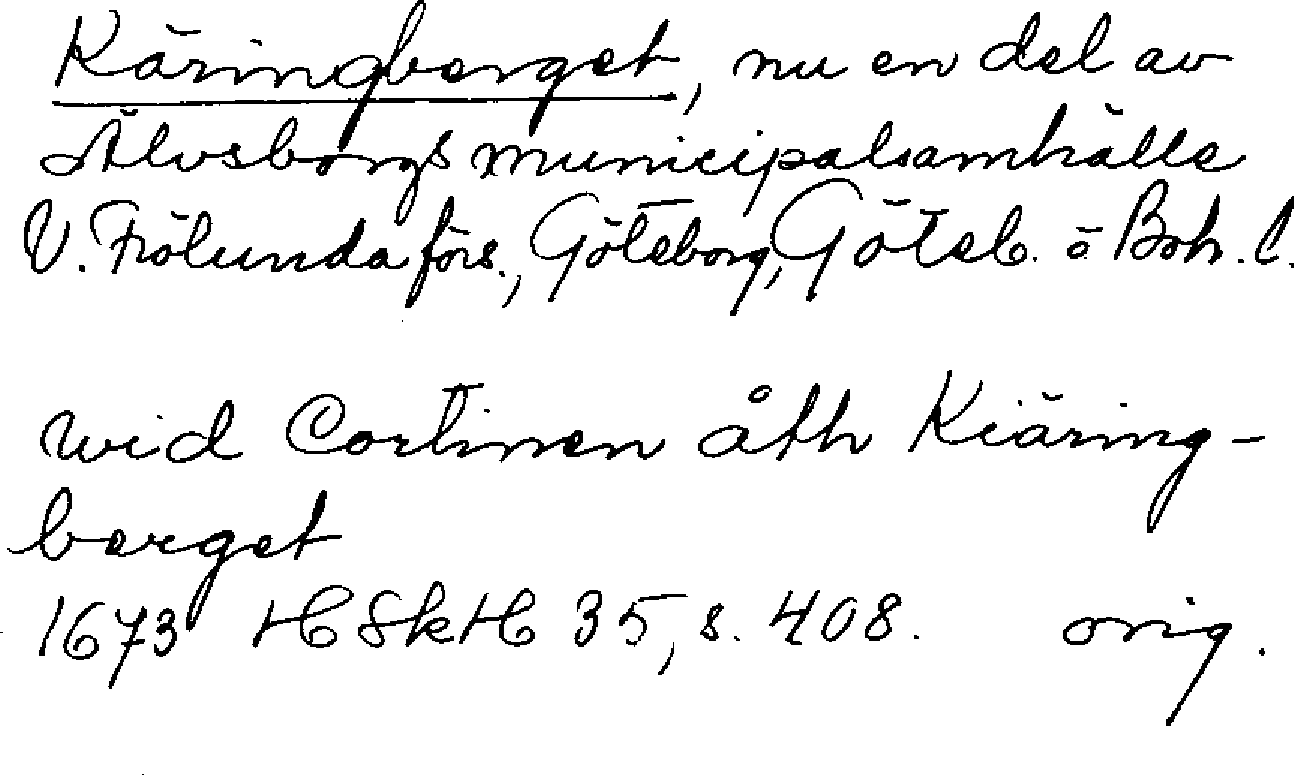 Käringberget, nu en del av
Älvsborgs municipalsamhälle
V. Frölunda förs., Göteborg, Göteb. o Boh. l.
wid Cortinen åth Kiäring-
berget
1673 HSkH 35, s. 408. orig.